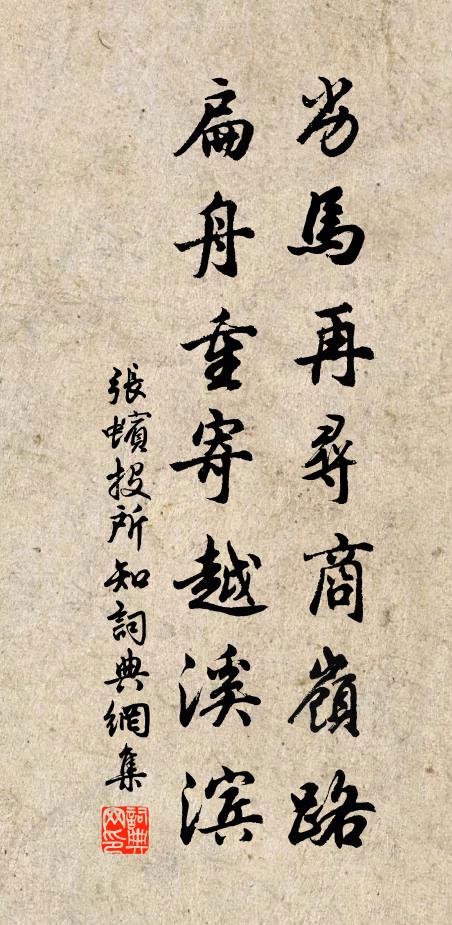 劣馬再尋商嶺路
扁舟重寄越溪滨
張蠙投所知詞典網集
詞典网印